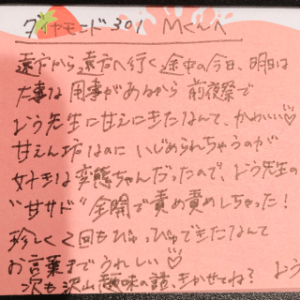 ダイヤモンド301 Mくんへ
遠方から遠方へ行く途中の今日、明日は
大事な用事があるから前夜祭で
よう先生に甘えにきたなんて、かわいい♡
甘えん坊なのにいじめられちゃうのが
好きな変態ちゃんだったので、よう先生の
"甘サド"全開で責め責めしちゃった!
珍しく2回もぴゅっぴゅできたなんて
お言葉までうれしい♡
次も沢山趣味の話、きかせてね? よう